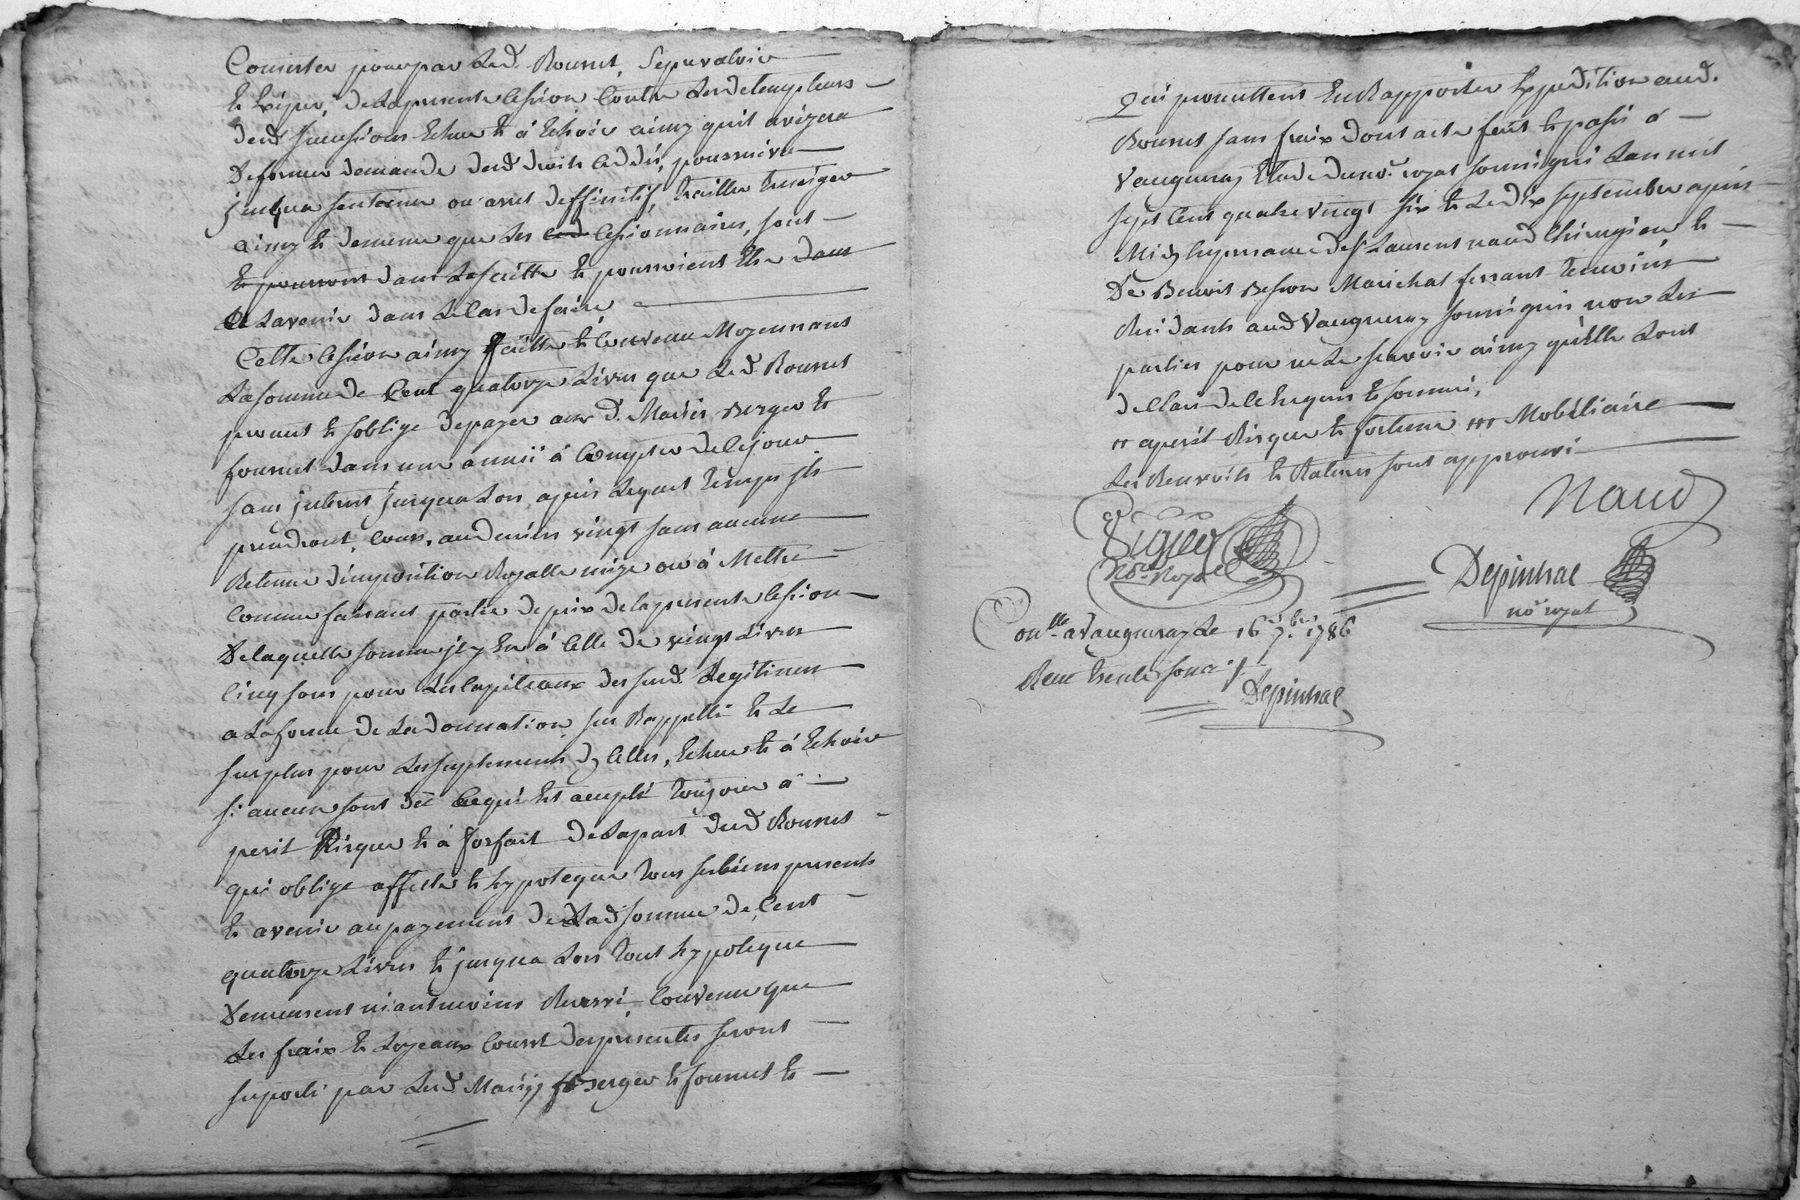 Consister pouvoir par led. Bournet, se prevaloir
et Exiper, de la presente Cession Contre Les detempteurs
desd. successions Echue et á Echoir ainsy quil avizera
Deformer demande desd droits Ceddés, poursuivre
jusqua sentence ou arret deffinitif, traitter transiger
ainsy et de meme que les Cessionnaires, sont
et pourront dans la suitte et pourroient Etre dans
Lavenir dans le Cas de faire
Cette Cession ainsy faitte et Convenue Moyennant
La somme de Cent quatorze Livres que led Bournet
promet et soblige de payer aux d. Mariés Berger et
fournet dans une année á Compter de Ce jour
sans interet jusqua Lors, apres Lequel temps ils
prendront, Cours, au denier vingt sans aucune
Retenue d'imposition Royalle mize ou á Mettre
Comme faisant partie du prix de la presente Cession
De laquelle somme il y En á Celle de vingt Livres
Cinq sous pour Les Capiteaux des susd. Legitimes
a La forme de La donnation sus Rappellé et Le
surplus pour Les suplements d'y Celles, Echue et á Echoir
si aucun sont dû Ce qui Est accepté toujours á
peril Risque et á forfait de la part dud Bournet
qui oblige affecte et hypoteque tous ses biens presents
et avenir au payement de Lad. somme de Cent
quatorze Livres et jusqua Lors tout hypoteque
Demeurent néantmoins Reservé, Convenu que
Les fraix et Loyeaux Coust des presentes seront
suporté par Lesd Mariés Berger et fournet et
Qui promettent En Rapporter Expedition aud.
Bournet sans fraix dont acte fait et passé á
Vaugneray Etude du no.re royal soussigné Lan mil
sept Cent quatre vingt six et Le dix septembre apres
Midy En presence de Sr Laurent naud Chirurgien et
De Benoit Besson Marichal ferrant temoins
Residants aud Vaugneray soussignés non Les
parties pour ne Le savoir ainsy quelle Lont
declaré de Ce Enquis et sommé,
rr aperil Risque et fortune rrr Mobiliaire
Les Renvoits et Ratures sont approuvé
Naud
no.re Royal
Depinhac
no.re royal
Con.lle a Vaugneray Le 16 7.bre 1786
Reçu trente sous
Depinhac